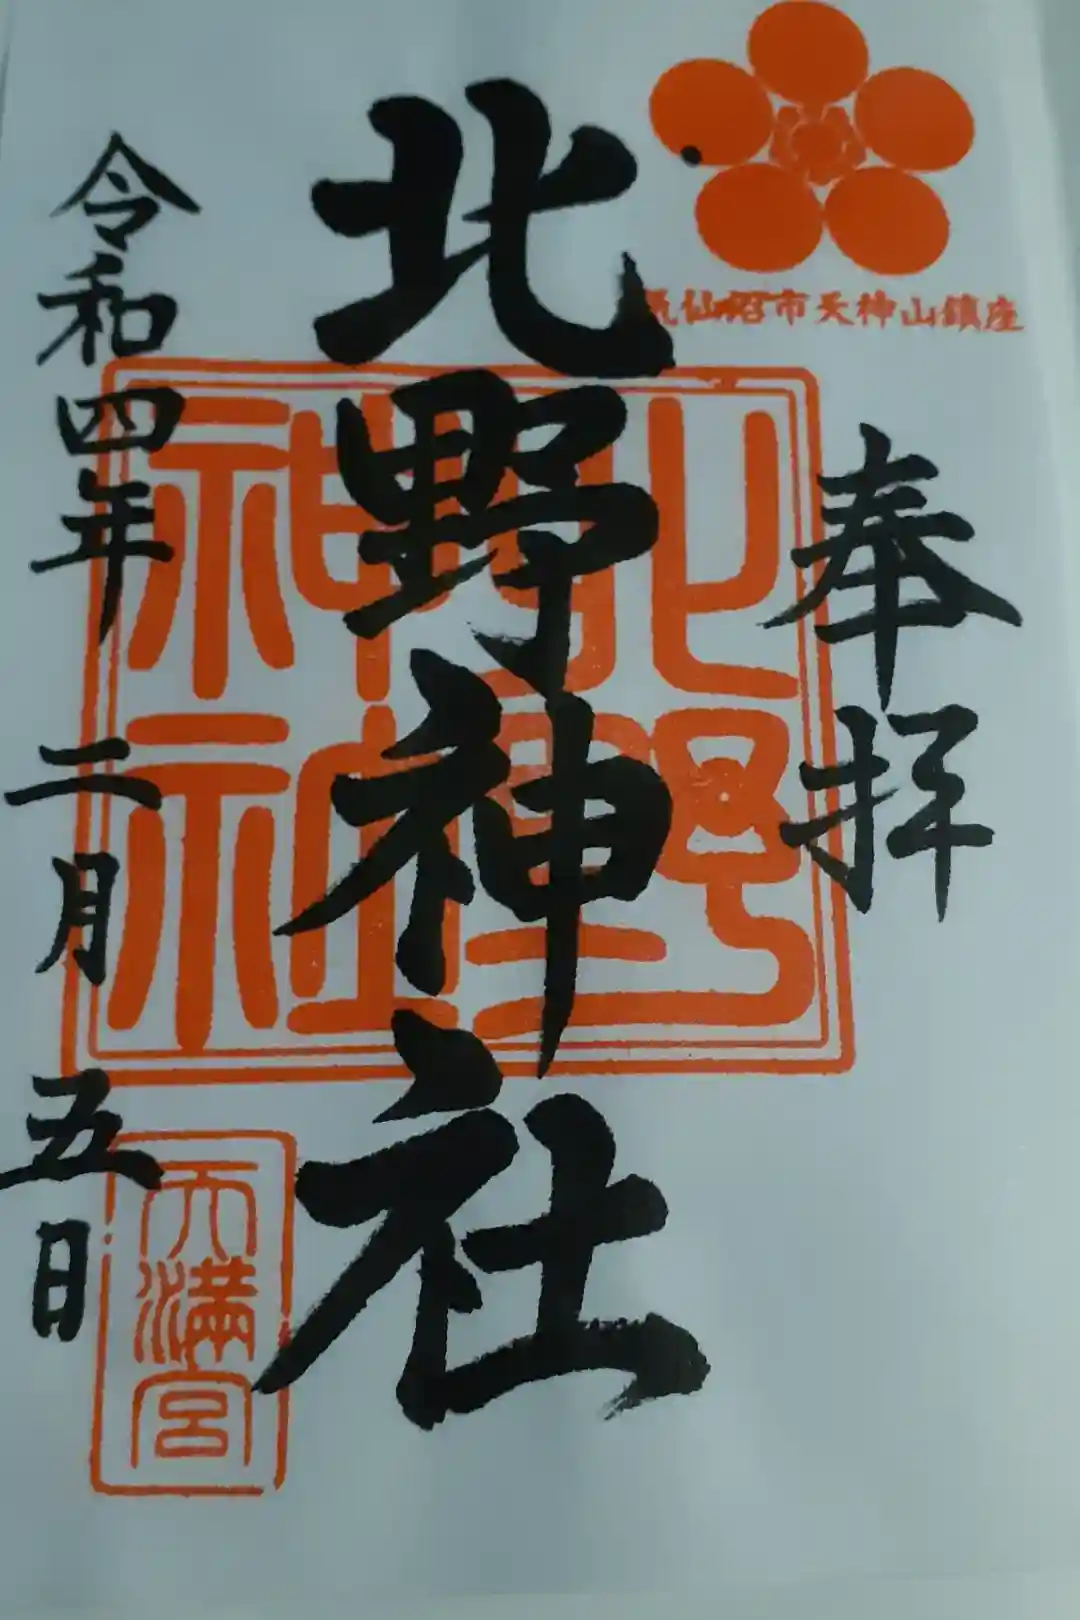 気仙沼市天神山鎮座
奉拝
北野神社
北野
神社
令和四年二月五日
天満宮